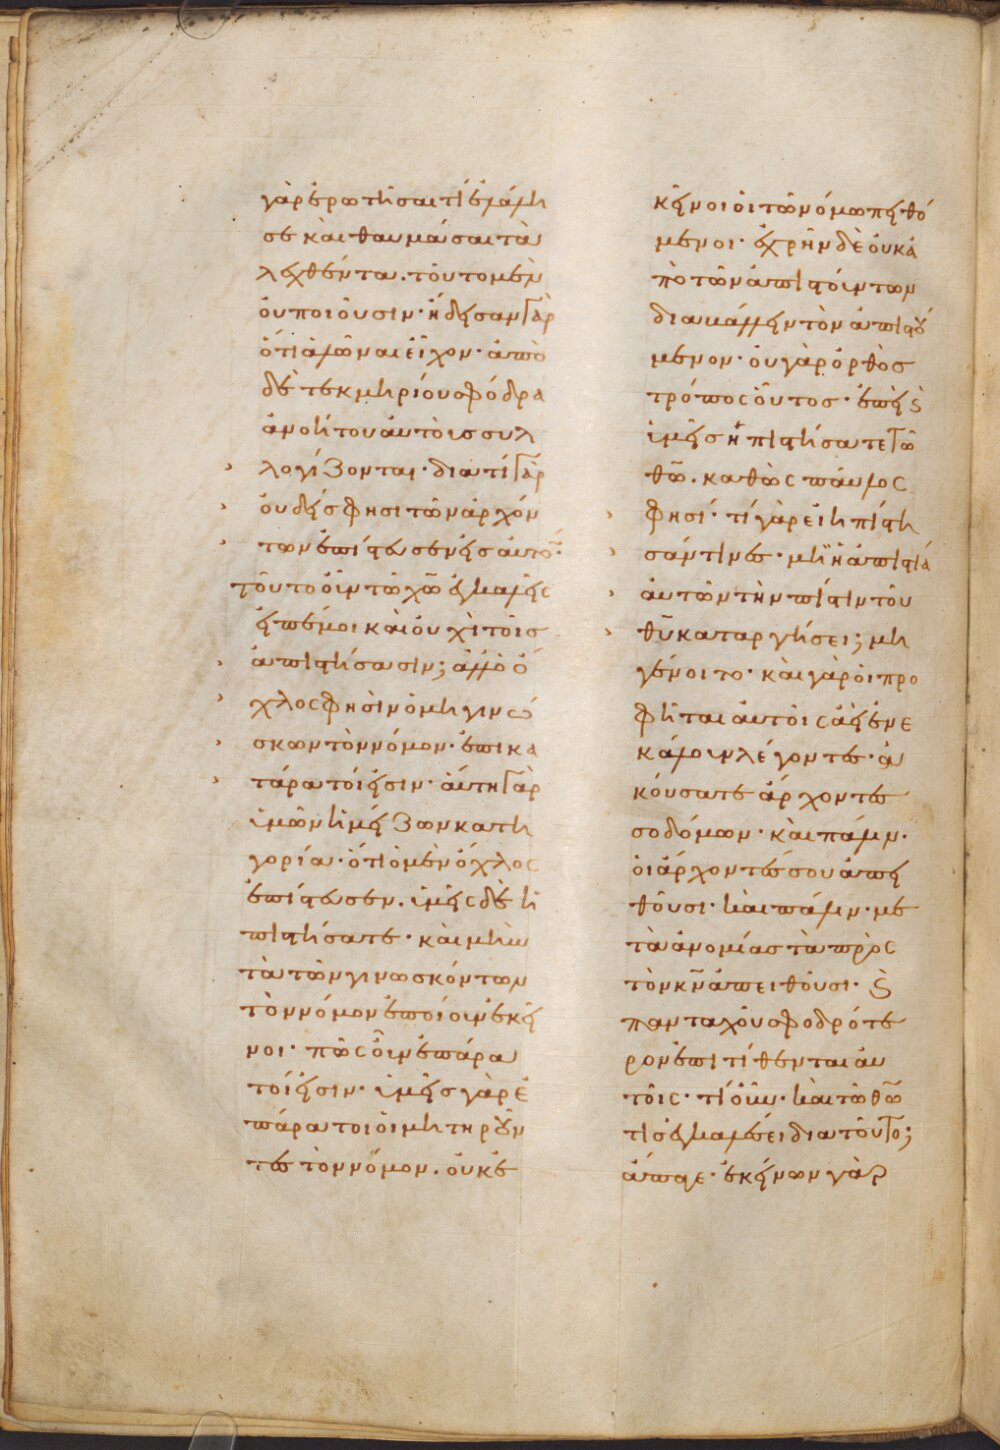 γὰρ ἐρωτῆσαι τί ἐλάλη
σε καὶ θαυμάσαι τὰ
λεχθέντα. τοῦτο μὲν
οὐ ποιοῦσιν· ἤδεσαν γὰρ
ὅτι ἁλῶναι εἶχον· ἀπὸ
δὲ τεκμηρίου σφόδρα
ἀνοήτου αὐτοῖς συλ
λογίζονται· διατί γὰρ
οὐδείς φησι τῶν ἀρχόν
των ἐπίστευσεν εἰς αὐτό·
τοῦτο οὖν τῶ χω ἐγκαλεῖς
εἰπέ μοι καὶ οὐχὶ τοῖς
ἀπιστήσασιν; ἀλλὸ ὄ
χλος φησὶν ὁ μὴ γινώ
σκων τὸν νόμον· ἐπικα
τάρατοί εἰσιν· αὕτη γὰρ
ὑμῶν ἡ μείζων κατη
γορία· ὅτι ὁ μὲν ὄχλος
ἐπίστευσεν. ὑμεῖς δὲ ἠ
πιστήσατε· καὶ μὴν
τὰ τῶν γινωσκόντων
τὸν νόμον ἐποίουν ἐκεῖ
νοι· πῶς οὖν ἐπάρα
τοί εἰσιν· ὑμεῖς γὰρ ἐ
πάρατοι οἱ μὴ τηροῦν
τες τὸν νόμον. οὐκ ἐ
κεῖνοι οἱ τῶ νόμω πειθό
μενοι· ἐχρῆν δὲ οὐκ ἀ
πὸ τῶν ἀπιστούντων
διαβάλλειν τὸν ἀπιστού
μενον· οὐ γὰρ ὀρθὸς
τρόπος οὗτος· ἐπεὶ καὶ
ὑμεῖς ἠπιστήσατε τῶ
θω. καθὼς παῦλος
φησί· τί γὰρ εἰ ἠπίστη
σάν τινες· μὴ ἡ ἀπιστία
αὐτῶν τὴν πίστιν τοῦ
θυ καταργήσει; μὴ
γένοιτο· καὶ γὰρ οἱ προ
φῆται αὐτοῖς ἀεὶ ἐνε
κάλουν λέγοντες· ἀ
κούσατε ἄρχοντες
σοδόμων· καὶ πάλιν·
οἱ ἄρχοντές σου ἀπει
θοῦσι· καὶ πάλιν· με
τὰ ἀνομίας τὰ πρὸς
τὸν κν ἀπειθοῦσι· καὶ
πανταχοῦ σφοδρότε
ρον ἐπιτίθενται αὐ
τοῖς· τί οὖν· καὶ τῶ θω
τὶς ἐγκαλέσει διατοῦτο;
ἄπαγε· ἐκείνων γὰρ